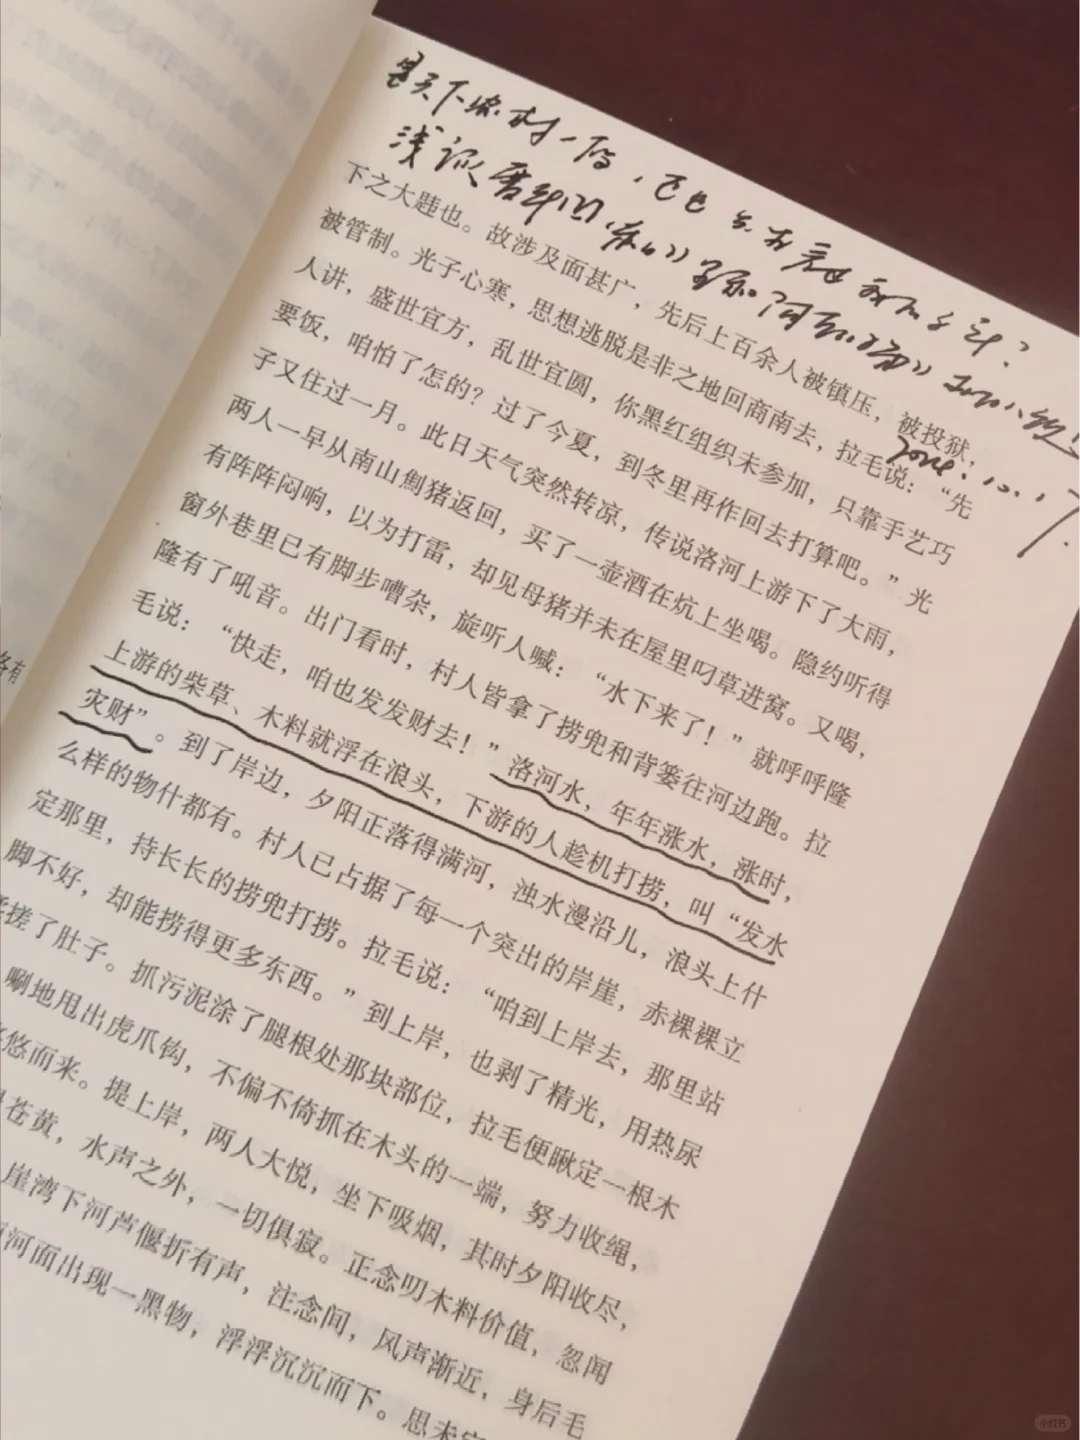 下之大韪也。故涉及面甚广，先后上百余人被镇压，被投狱，
被管制。光子心寒，思想逃脱是非之地回商南去，拉毛说：“先
人讲，盛世宜方，乱世宜圆，你黑红组织未参加，只靠手艺巧
要饭，咱怕了怎的？过了今夏，到冬里再作回去打算吧。”光
子又住过一月。此日天气突然转凉，传说洛河上游下了大雨，
两人一早从南山劁猪返回，买了一壶酒在炕上坐喝。隐约听得
有阵阵闷响，以为打雷，却见母猪并未在屋里叼草进窝。又喝，
窗外巷里已有脚步嘈杂，旋听人喊：“水下来了！”就呼呼隆
隆有了吼音。出门看时，村人皆拿了捞兜和背篓往河边跑。拉
毛说：“快走，咱也发发财去！”洛河水，年年涨水，涨时，
上游的柴草、木料就浮在浪头，下游的人趁机打捞，叫“发水
灾财”。到了岸边，夕阳正落得满河，浊水漫沿儿，浪头上什
么样的物什都有。村人已占据了每一个突出的岸崖，赤裸裸立
定那里，持长长的捞兜打捞。拉毛说：“咱到上岸去，那里站
脚不好，却能捞得更多东西。”到上岸，也剥了精光，用热尿
搓了肚子。抓污泥涂了腿根处那块部位，拉毛便瞅定一根木
唰地甩出虎爪钩，不偏不倚抓在木头的一端，努力收绳，
悠而来。提上岸，两人大悦，坐下吸烟，其时夕阳收尽，
苍黄，水声之外，一切俱寂。正念叨木料价值，忽闻
崖湾下河芦偃折有声，注念间，风声渐近，身后毛
河面出现一黑物，浮浮沉沉而下。思未
小红书